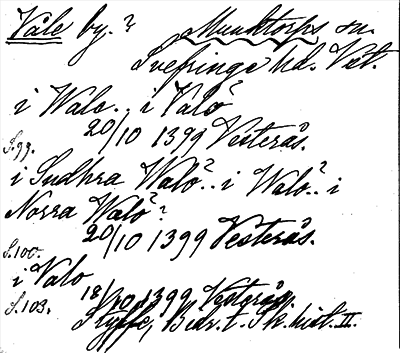 Våle by.? Munktorps sn.
Svefringe hd. Vet.
i Walo.. i Valo?
20/10 1399 Vesterås.
S.99.
i Sudhra Walo?.. i Walo?.. i
Norra Walo?
20/10 1399 Vesterås.
S.100.
i Valo
18/10 1399 Vesterås.
S.103.
Styffe, Bidr. t. Sk. hist. II.